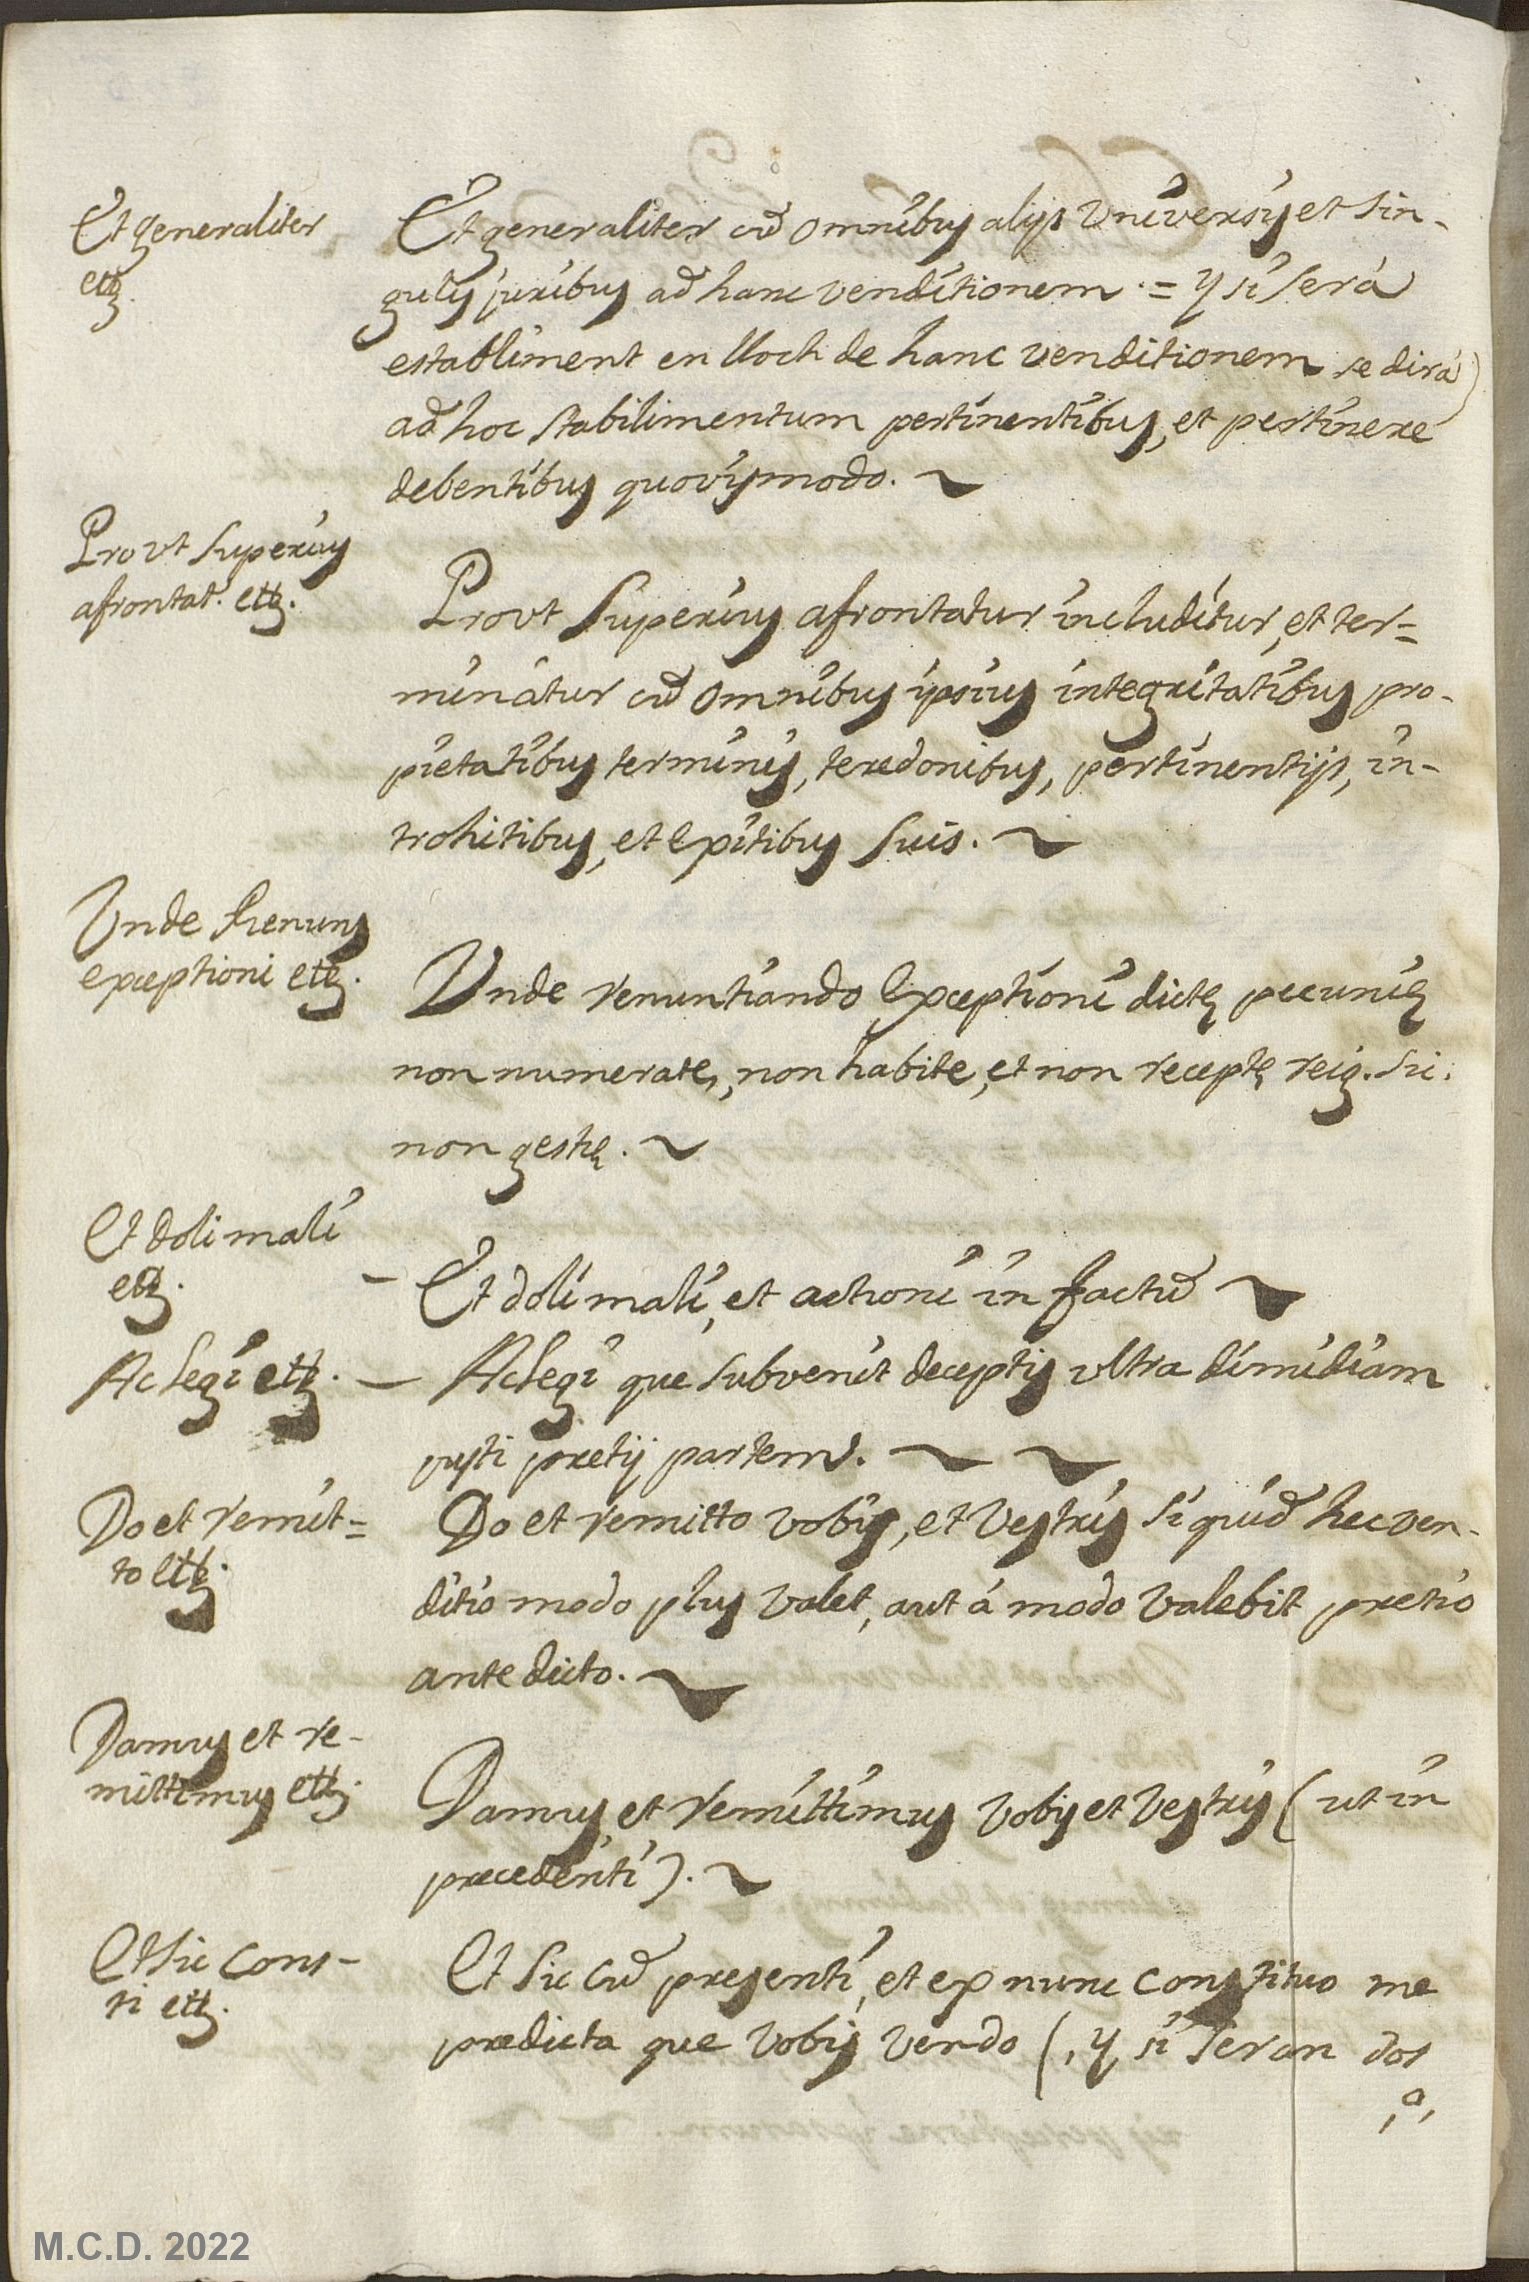 Et generaliter
ettz.
Et generaliter cũ omnibus alijs Universis et sin-
gulis juribus ad hanc venditionem = y si será
establiment en lloch de hanc venditionem se dirá)
ad hoc stabilimentum pertinentibus, et pertinere
debentibus quovismodo.
Prout superius
afrontat. ettz.
Prout superius afrontatur includitur, et ter=
minatur cũ omnibus ipsius integritatibus pro-
pietatibus terminis, teredonibus, pertinentijs, in-
trohitibus, et exitibus suis.
Unde Renuns
exceptioni ettz.
Unde renuntiando exceptioni dictę pecunię
non numerate, non habite, et non receptę reiq. sic
non gestę.
Et doli mali
ettz.
- Et doli mali, et actioni in factũ
Ac legi ettz. -
Ac legi que subvenit deceptis ultra dimidiam
justi pretij partem.
Do et remit=
to ettz.
Do et remitto vobis, et Vestris si quid hec ven-
ditio modo plus valet, aut á modo valebit pretio
ante dicto.
Damus et re-
mittimus ettz.
Damus, et Remittimus Vobis et Vestris (ut in
precedenti).
Et sic cons-
ti ettz.
Et sic cũ presenti, et ex nunc constituo me
predicta que Vobis Vendo (, y si seran dos
,o,
M.C.D. 2022